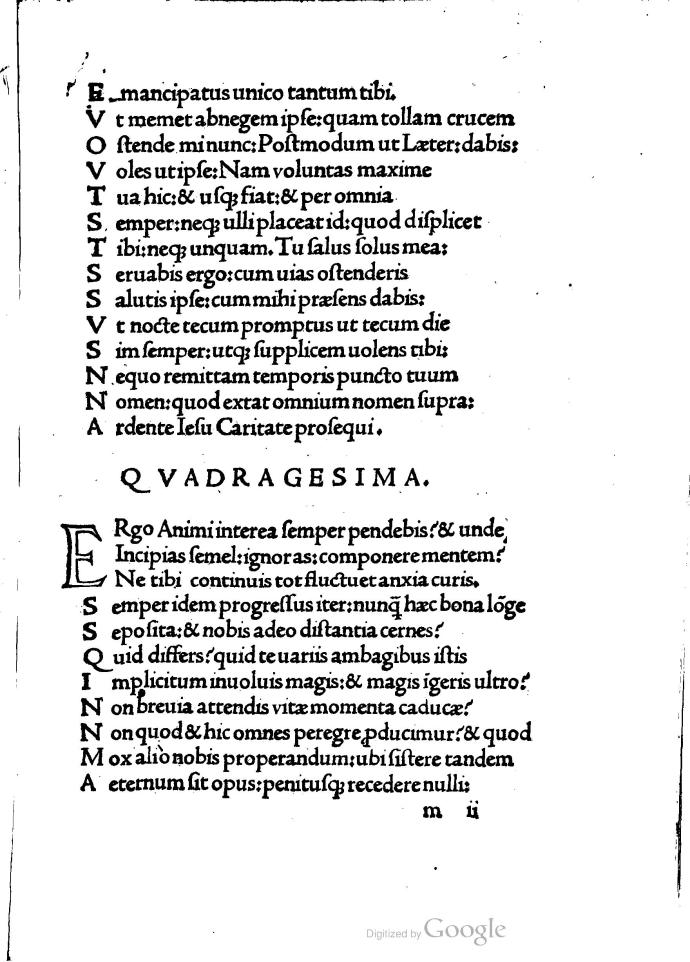 Emancipatus unico tantum tibi.
Vt memet abnegem ipſe:quam tollam crucem
Oſtende mi nunc:Poſtmodum ut Læter:dabis:
Voles ut ipſe:Nam voluntas maxime
Tua hic:& uſq; fiat:& per omnia
Semper:neq; ulli placeat id:quod diſplicet
Tibi:neq; unquam. Tu ſalus ſolus mea:
Seruabis ergo:cum uias oſtenderis
Salutis ipſe:cum mihi præſens dabis:
Vt nocte tecum promptus ut tecum die
Sim ſemper:utq; ſupplicem uolens tibi:
Nequo remittam temporis puncto tuum
Nomen:quod extat omnium nomen ſupra:
Ardente Ieſu Caritate proſequi.
QVADRAGESIMA.
ERgo Animi interea ſemper pendebis?& unde
Incipias ſemel:ignoras:componere mentem?
Ne tibi continuis tot fluctuet anxia curis.
Semper idem progreſſus iter:nunq̄ hæc bona lōge
Sepoſita:& nobis adeo diſtantia cernes?
Quid differs?quid te uariis ambagibus iſtis
Implicitum inuoluis magis:& magis īgeris ultro?
Non breuia attendis vitæ momenta caducæ?
Non quod & hic omnes peregre ꝓducimur?& quod
Mox alio nobis properandum:ubi ſiſtere tandem
Aeternum ſit opus:penituſq; recedere nulli:
m ii
Digitized by Google